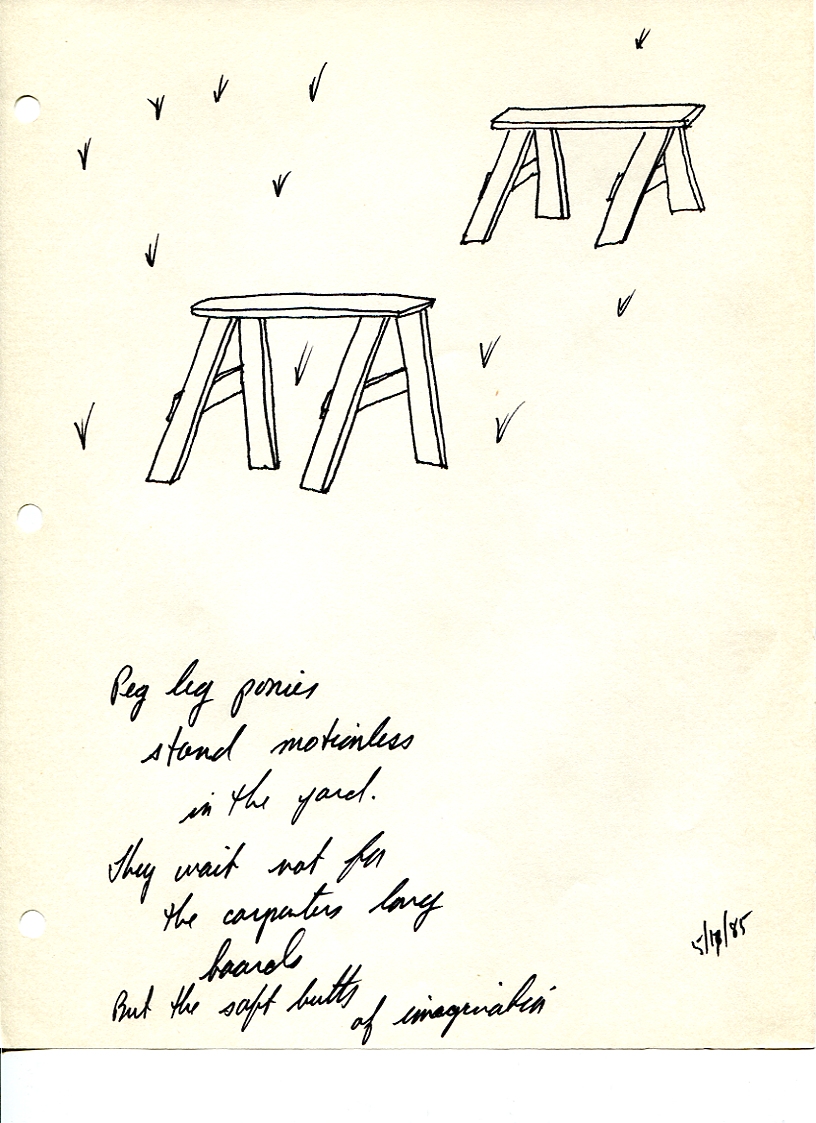 Peg leg ponies
stand motionless
in the yard.
They wait not for
the carpenters long
boards
But the soft butts
of imagination